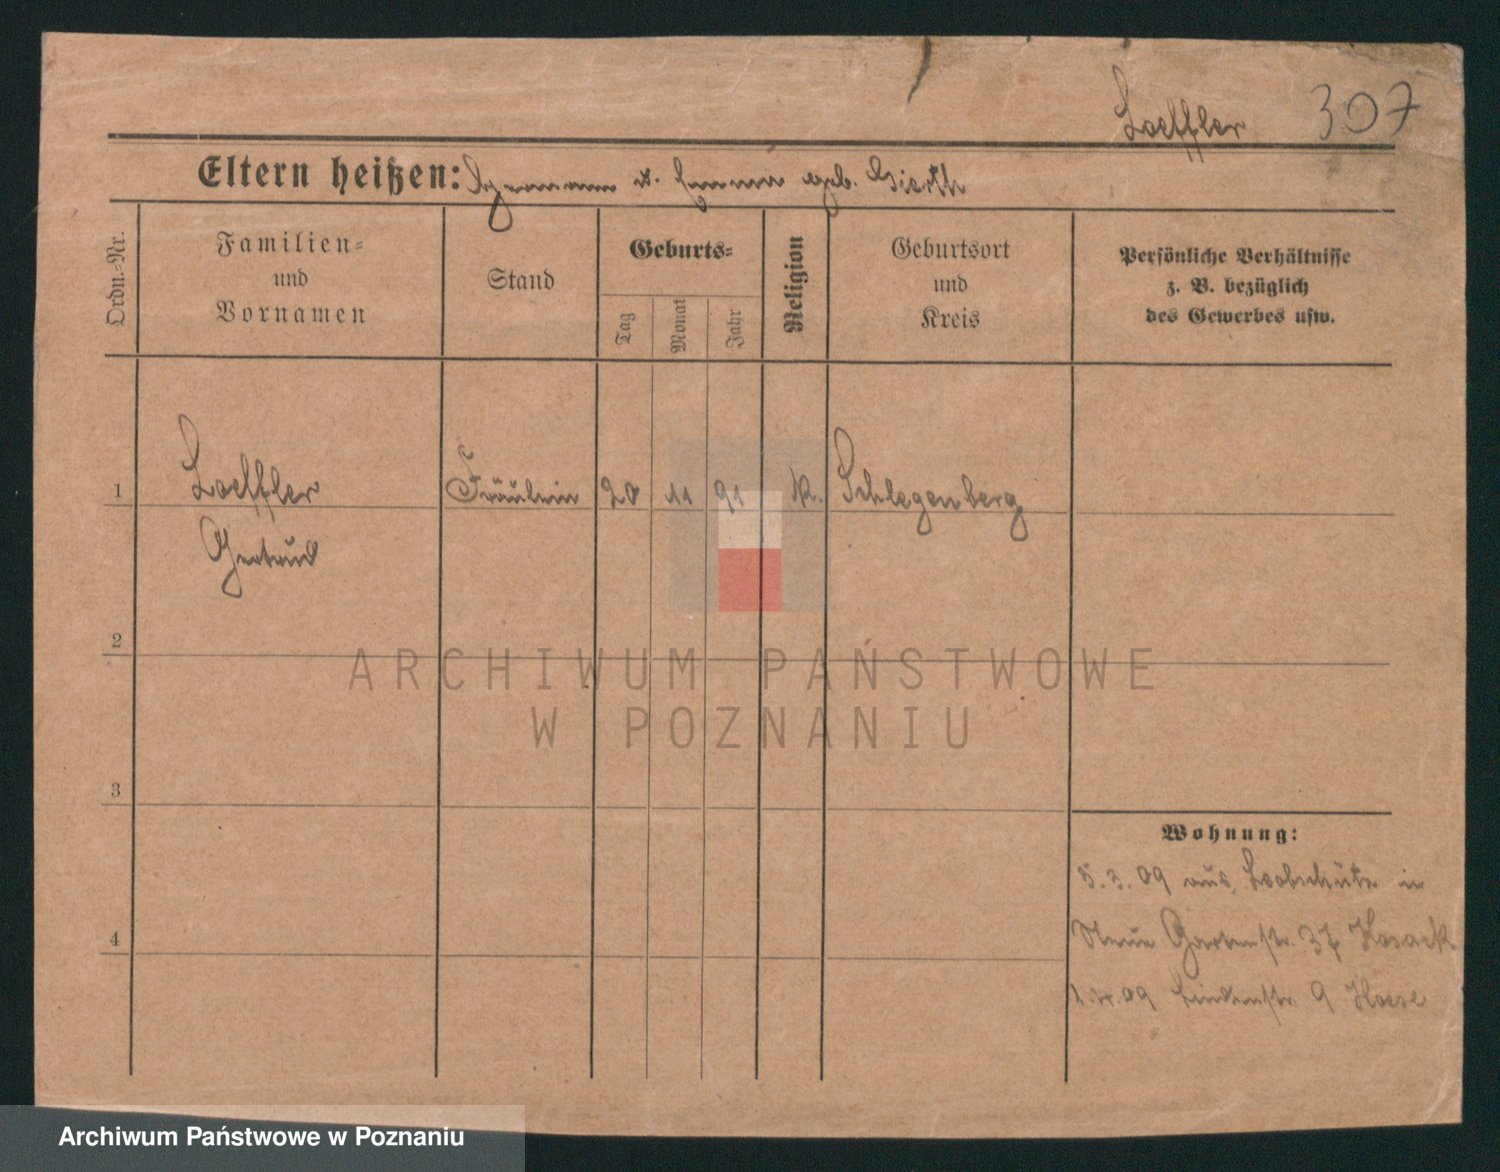 Loeffler 307
Eltern heißen: Hermann u. Emma geb. Gierth
Ordn.-Nr.
Familien-
und
Vornamen
Stand
Geburts-
Tag
Monat
Jahr
Religion
Geburtsort
und
Kreis
Persönliche Verhältnisse
z. B. bezüglich
des Gewerbes usw.
1 Loeffler Fräulein 20 11 91 k. Schlegenberg
Gertrud
2
3
4
Wohnung:
5.3.09 aus Leobschütz in
Neue Gartenstr. 37 Kosack
1.4.09 Lindenstr. 9
ARCHIWUM PAŃSTWOWE
W POZNANIU
Archiwum Państwowe w Poznaniu